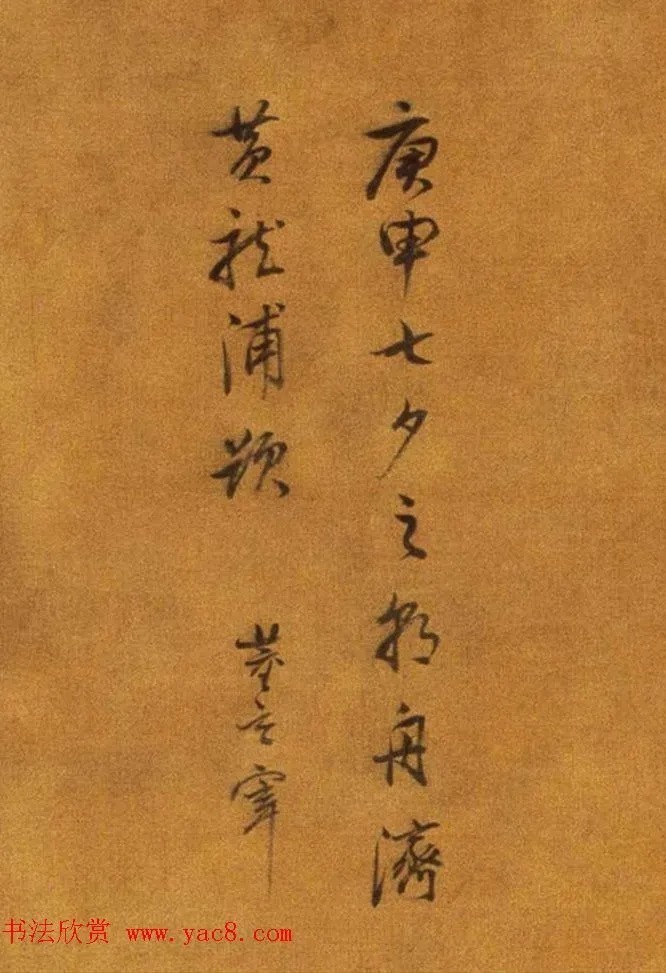 庚申七夕之朝舟濟
黄龍浦題 董玄宰
书法欣赏 www.yac8.com